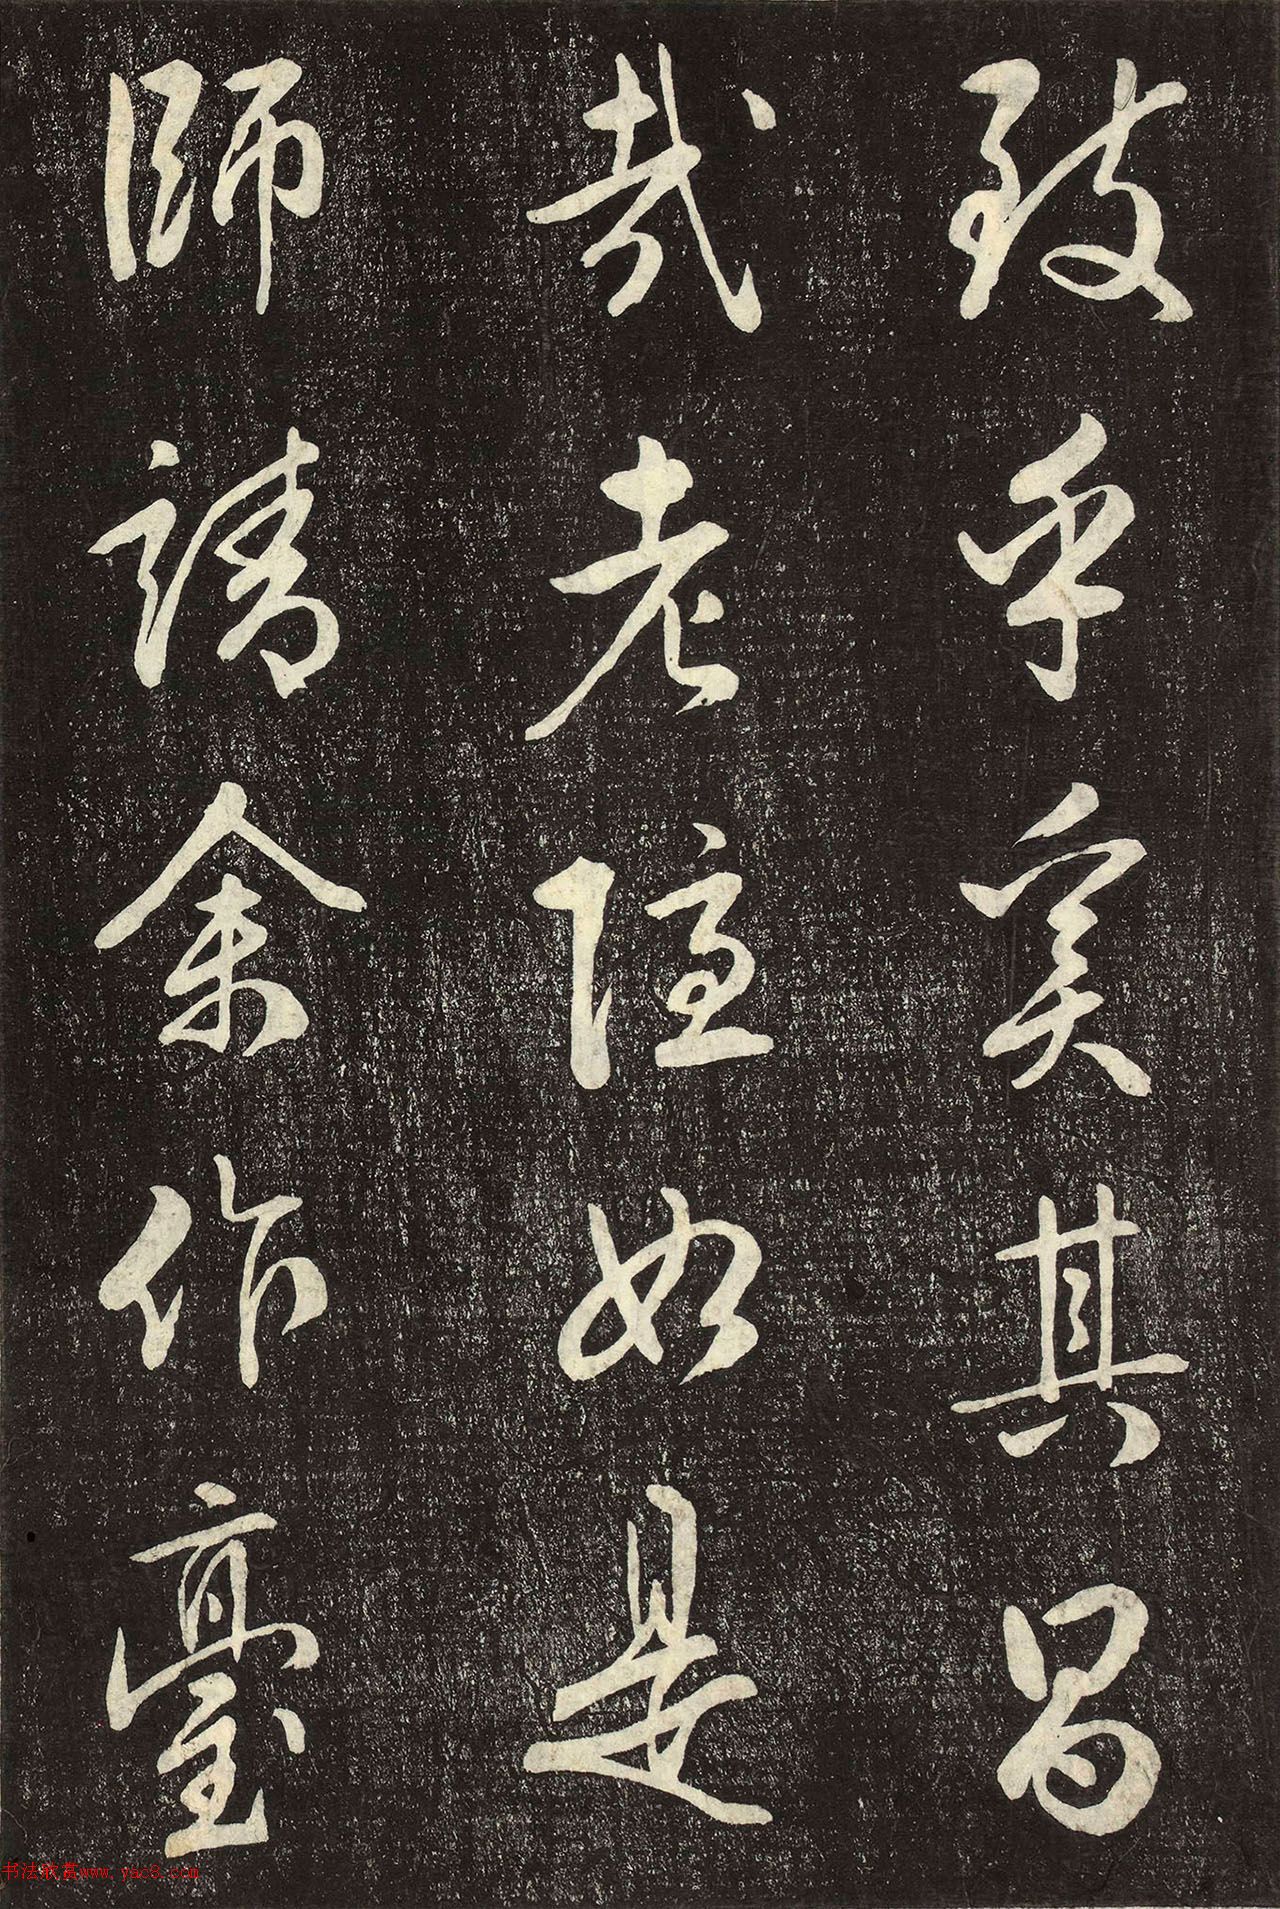 致乎實其曷
哉老陸如是
師請余作臺
书法欣赏www.yac8.com